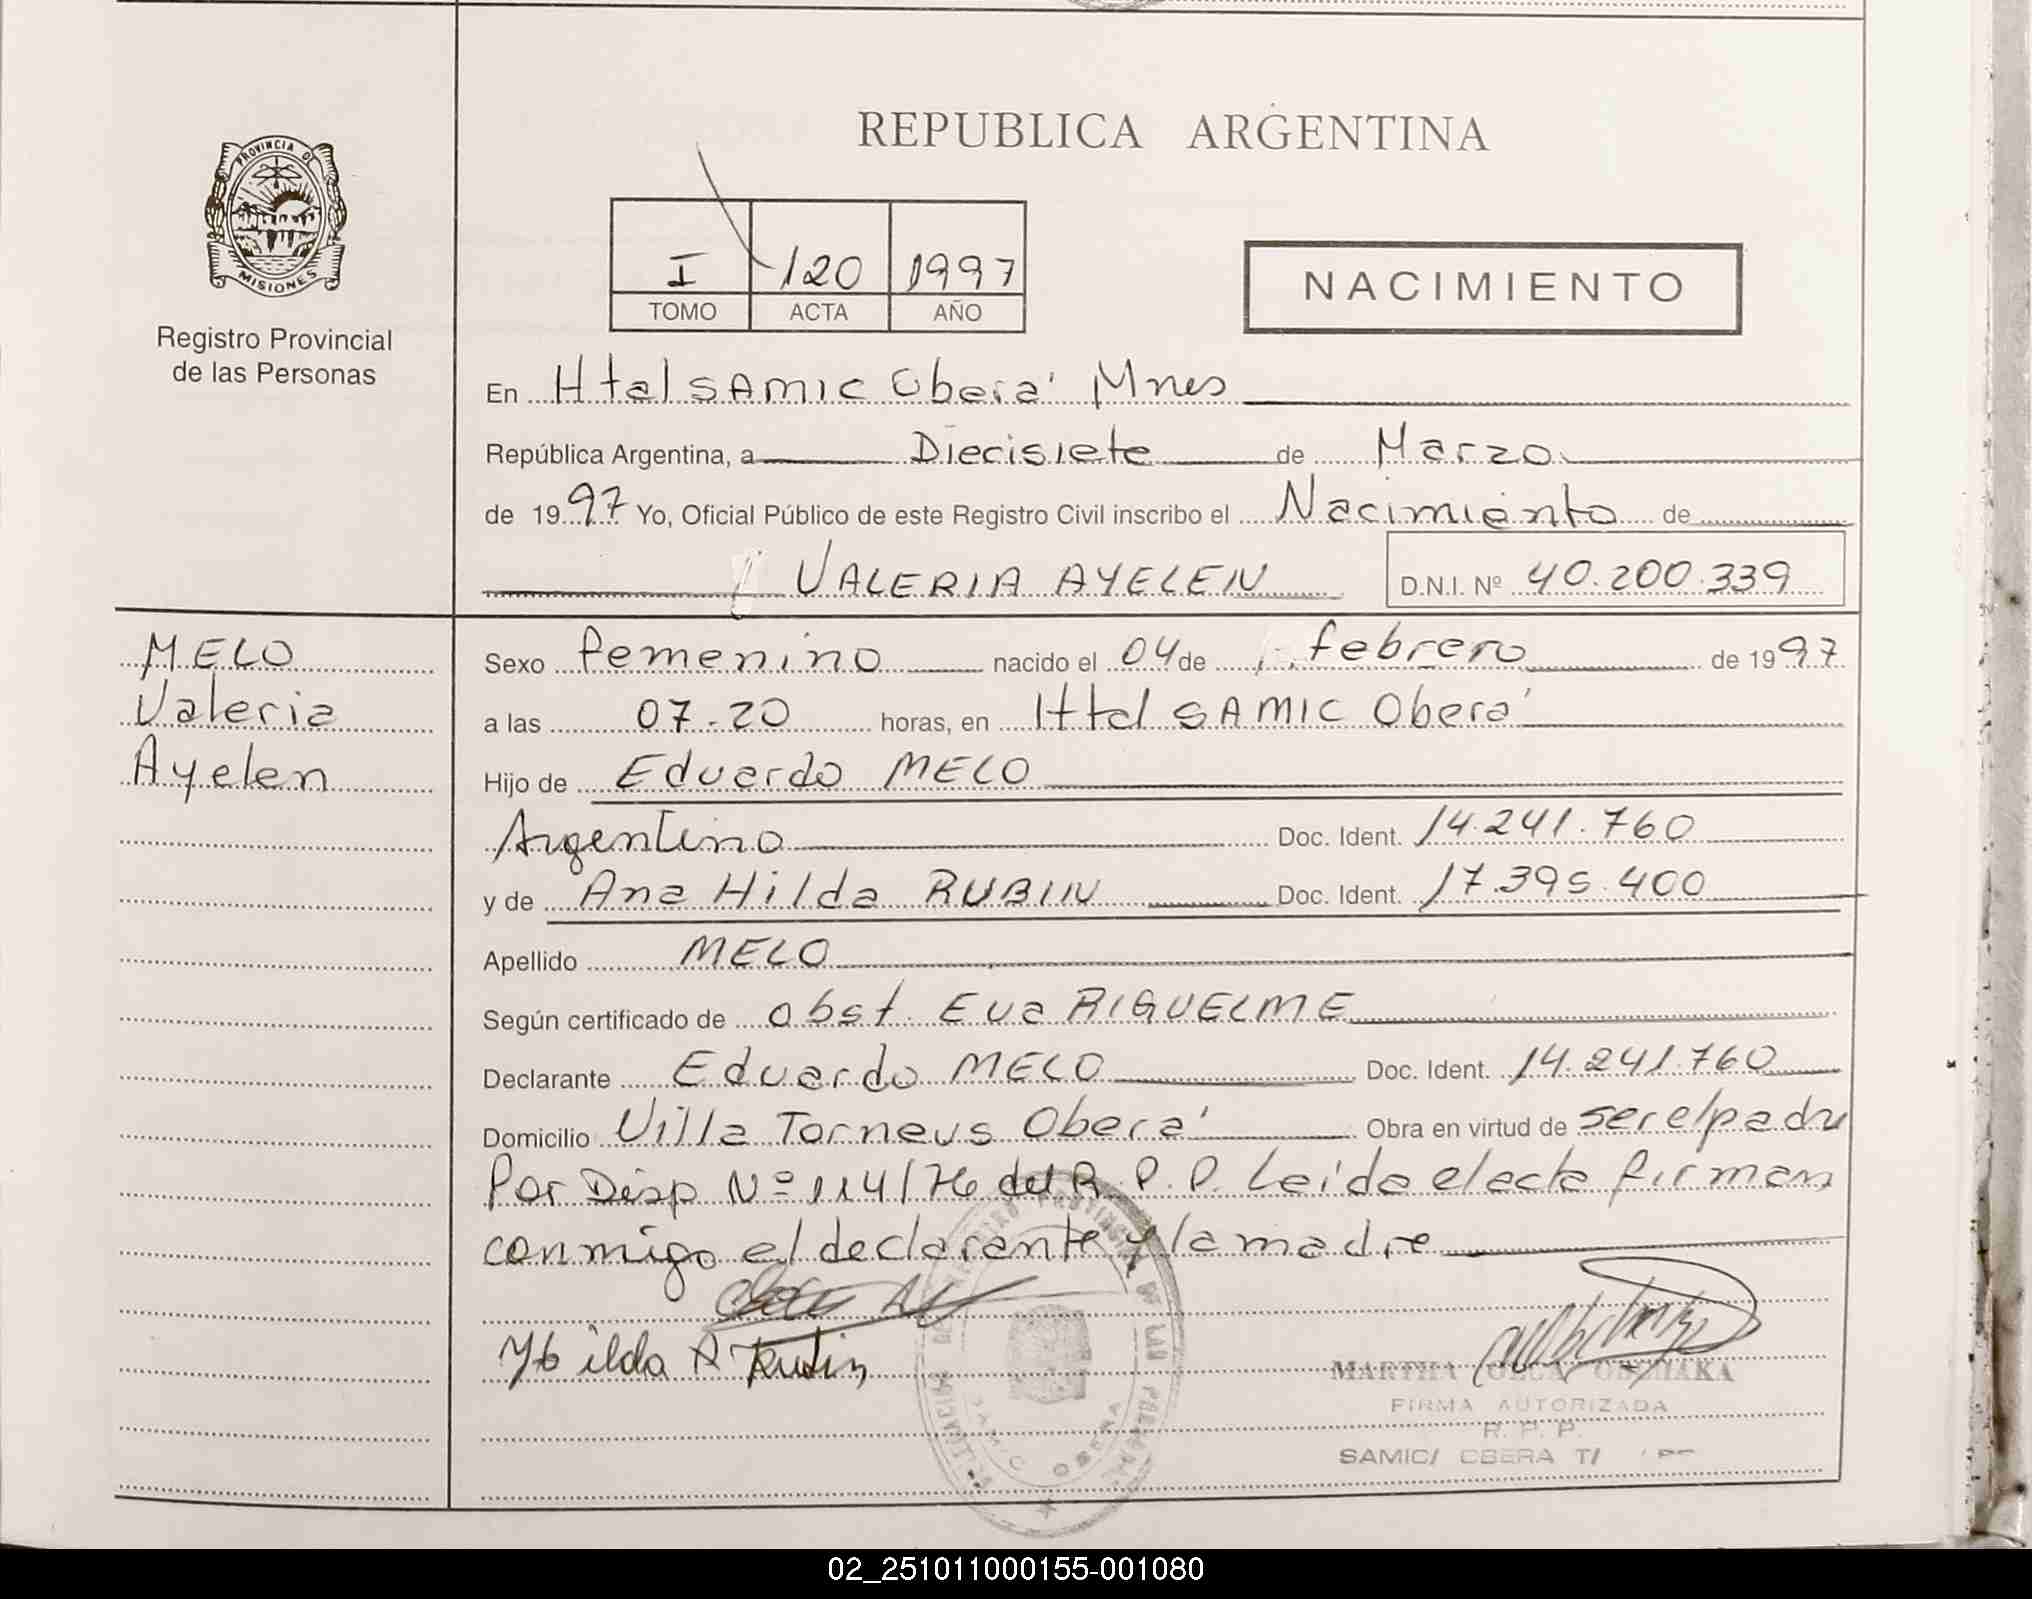 REPUBLICA ARGENTINA
PROVINCIA D
MISIONES
Registro Provincial
de las Personas
I 120 1997
TOMO ACTA AÑO
NACIMIENTO
En Htal SAMIC Oberá Mnes
República Argentina, a Diecisiete de Marzo
de 1997 Yo, Oficial Público de este Registro Civil inscribo el Nacimiento de
VALERIA AYELEN D.N.I. Nº 40.200.339
MELO
Valeria
Ayelen
Sexo femenino nacido el 04 de febrero de 1997
a las 07-20 horas, en Htal SAMIC Oberá
Hijo de Eduardo MELO
Argentino Doc. Ident. 14.241.760
y de Ana Hilda RUBIN Doc. Ident. 17.395.400
Apellido MELO
Según certificado de obst. Eva RIQUELME
Declarante Eduardo MELO Doc. Ident. 14.241.760
Domicilio Villa Torneus Oberá Obra en virtud de ser el padre
Por Disp Nº 114/76 del R.P.P. Leida el acta firman
conmigo el declarante y la madre
Hilda A Rubin
MARTHA
FIRMA AUTORIZADA
R. P. P.
SAMIC/ OBERA T/
02_251011000155-001080